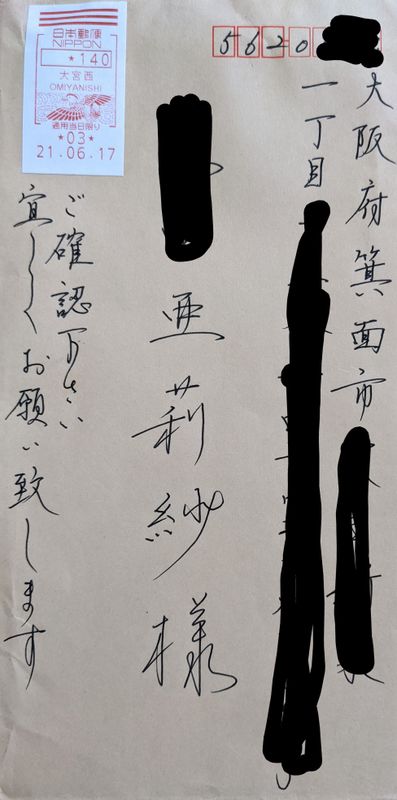 日本郵便
NIPPON
★140
大宮西
OMIYANISHI
適用当日限り
★03★
21.06.17
5620
大阪府箕面市
一丁目
亜莉紗様
ご確認下さい
宜しくお願い致します